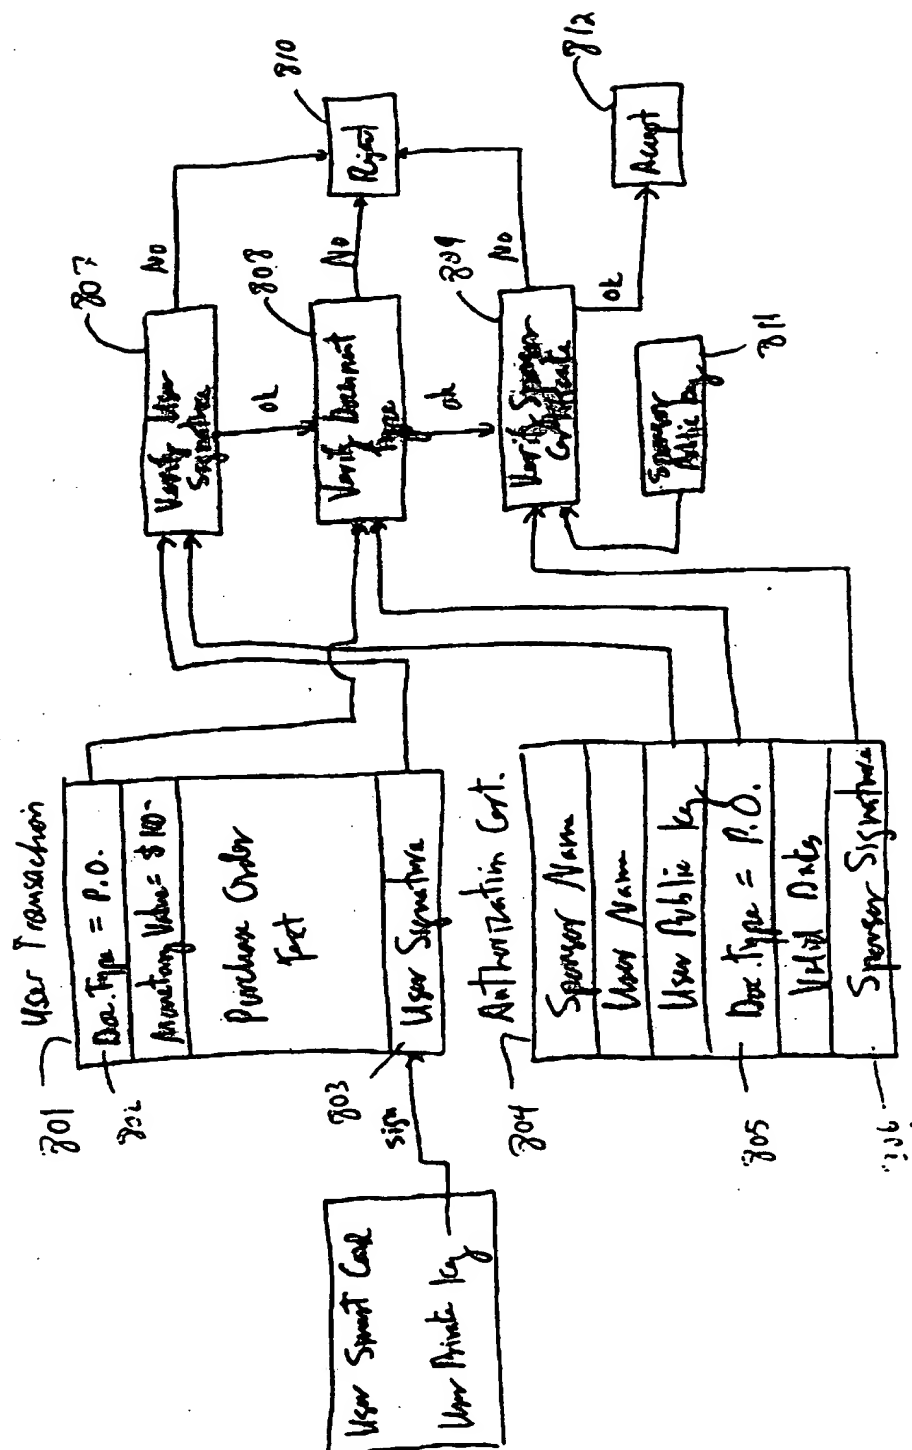 User Smart Card
User Private Key
sign
801
User Transaction
802
Doc. Type = P.O.
Monetary Value = $100-
Purchase Order
Text
803
User Signature
804
Authorization Cert.
Sponsor Name
User Name
User Public Key
805
Doc. Type = P.O.
Valid Dates
Sponsor Signature
807
Verify User
Signature
No
OK
808
Verify Document
Type
No
OK
809
Verify Sponsor
Certificate
No
OK
811
Sponsor
Public Key
810
Reject
812
Accept